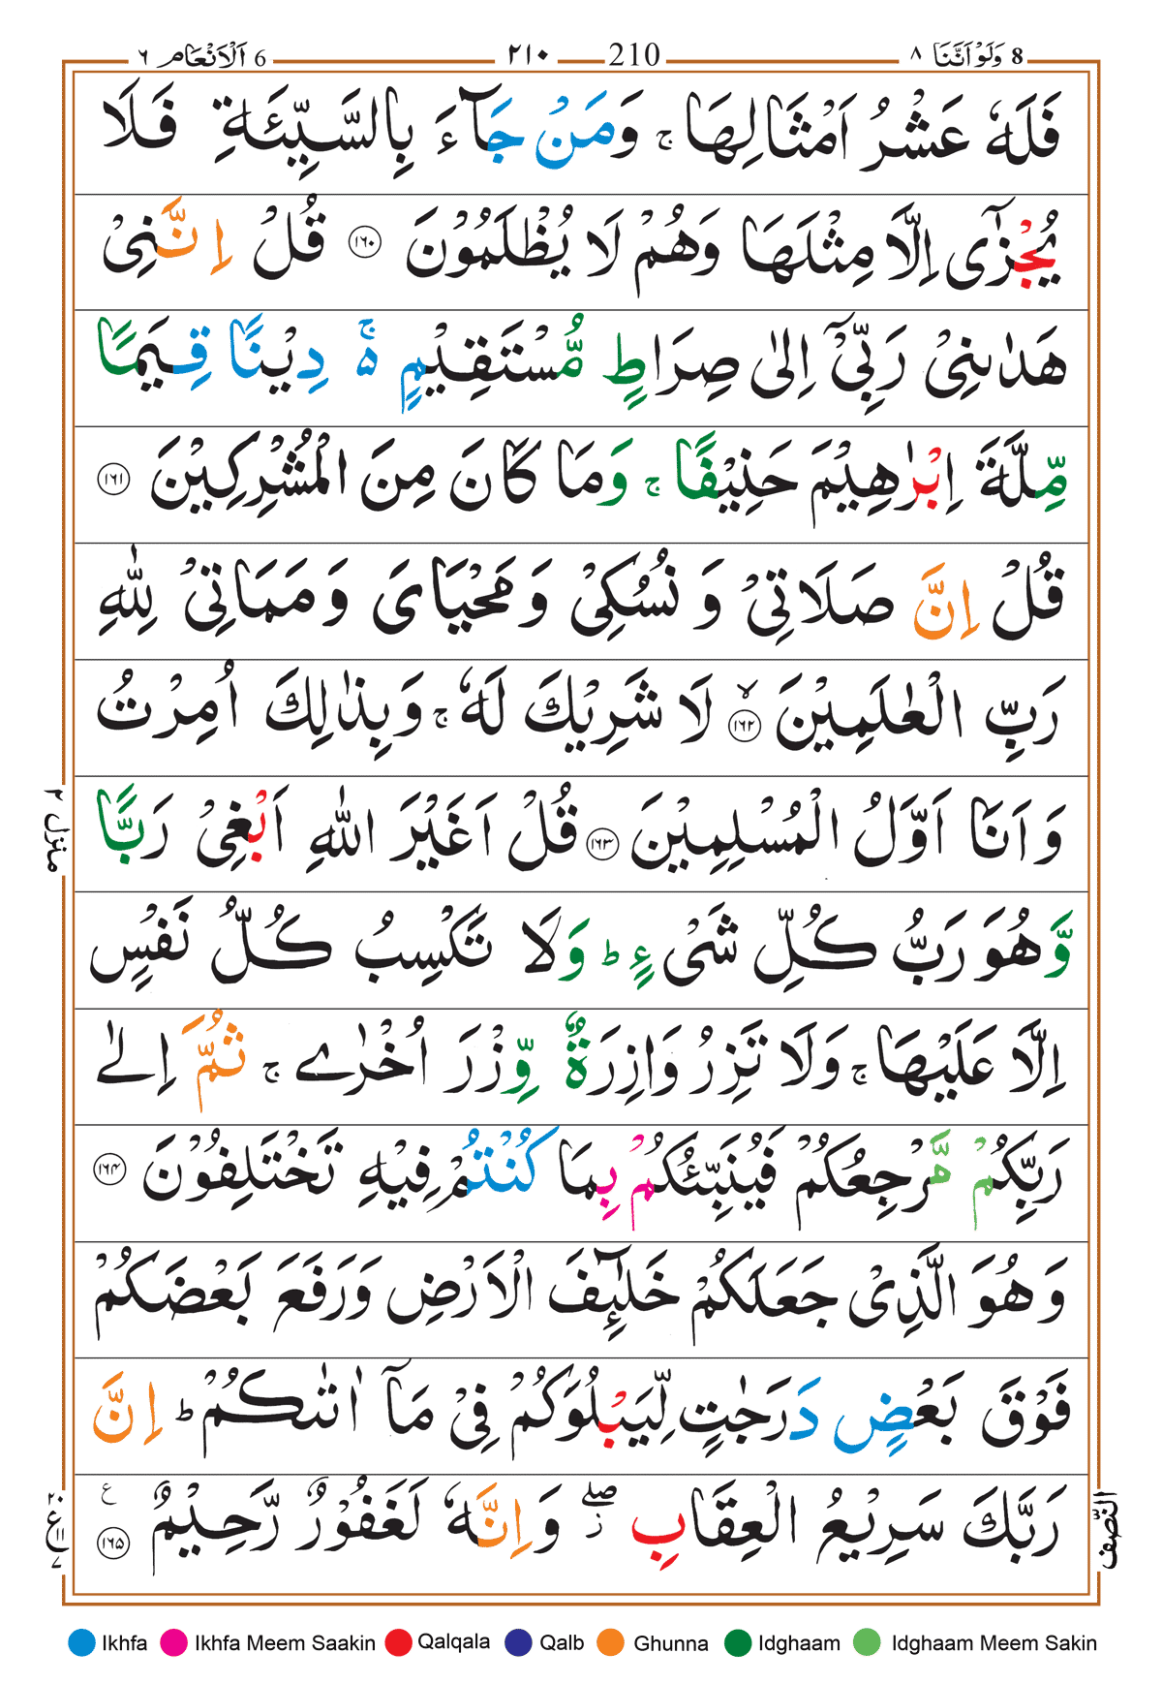 8 وَلَوْ اَنَّنَا ٨ 210 ٢١٠ 6 اَلْاَنْعَام ٦
فَلَهٗ عَشْرُ اَمْثَالِهَا ۚ وَمَنْ جَآءَ بِالسَّيِّئَةِ فَلَا
يُجْزٰٓى اِلَّا مِثْلَهَا وَهُمْ لَا يُظْلَمُوْنَ ١٦٠ قُلْ اِنَّنِىْ
هَدٰىنِىْ رَبِّىْٓ اِلٰى صِرَاطٍ مُّسْتَقِيْمٍ ۥۚ دِيْنًا قِيَمًا
مِّلَّةَ اِبْرٰهِيْمَ حَنِيْفًا ۚ وَمَا كَانَ مِنَ الْمُشْرِكِيْنَ ١٦١
قُلْ اِنَّ صَلَاتِىْ وَ نُسُكِىْ وَ مَحْيَاىَ وَ مَمَاتِىْ لِلّٰهِ
رَبِّ الْعٰلَمِيْنَ ۙ ١٦٢ لَا شَرِيْكَ لَهٗ ۚ وَبِذٰلِكَ اُمِرْتُ
وَ اَنَا اَوَّلُ الْمُسْلِمِيْنَ ١٦٣ قُلْ اَغَيْرَ اللّٰهِ اَبْغِىْ رَبًّا
وَّ هُوَ رَبُّ كُلِّ شَىْءٍ ؕ وَلَا تَكْسِبُ كُلُّ نَفْسٍ
اِلَّا عَلَيْهَا ۚ وَلَا تَزِرُ وَازِرَةٌ وِّزْرَ اُخْرٰى ۚ ثُمَّ اِلٰى
رَبِّكُمْ مَّرْجِعُكُمْ فَيُنَبِّئُكُمْ بِمَا كُنْتُمْ فِيْهِ تَخْتَلِفُوْنَ ١٦٤
وَ هُوَ الَّذِىْ جَعَلَكُمْ خَلٰٓئِفَ الْاَرْضِ وَرَفَعَ بَعْضَكُمْ
فَوْقَ بَعْضٍ دَرَجٰتٍ لِّيَبْلُوَكُمْ فِىْ مَآ اٰتٰىكُمْ ؕ اِنَّ
رَبَّكَ سَرِيْعُ الْعِقَابِ ۖ ز وَ اِنَّهٗ لَغَفُوْرٌ رَّحِيْمٌ ١٦٥ ع
منزل ٢
النّصف
٢٠ ع ١١ ٧
Ikhfa Ikhfa Meem Saakin Qalqala Qalb Ghunna Idghaam Idghaam Meem Sakin